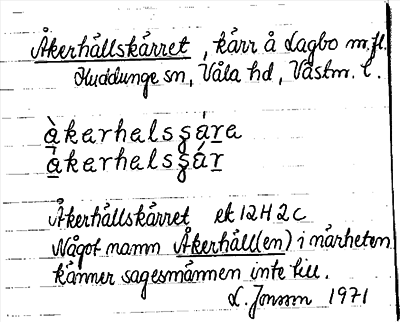 Åkerhållskärret, kärr å Lagbo m.fl.
Huddunge sn, Våla hd, Västm. l.
àkerhalsʂáre
àkerhalsʂár
Åkerhållskärret ek 12H2c
Något namn Åkerhåll(en) i närheten
känner sagesmännen inte till.
L. Jonson 1971